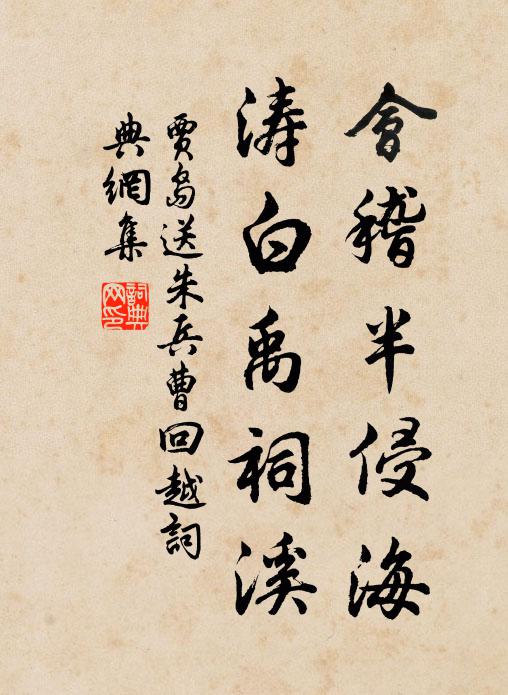 會稽半侵海
濤白禹祠溪
賈島送朱兵曹回越詞
典網集
詞典網印